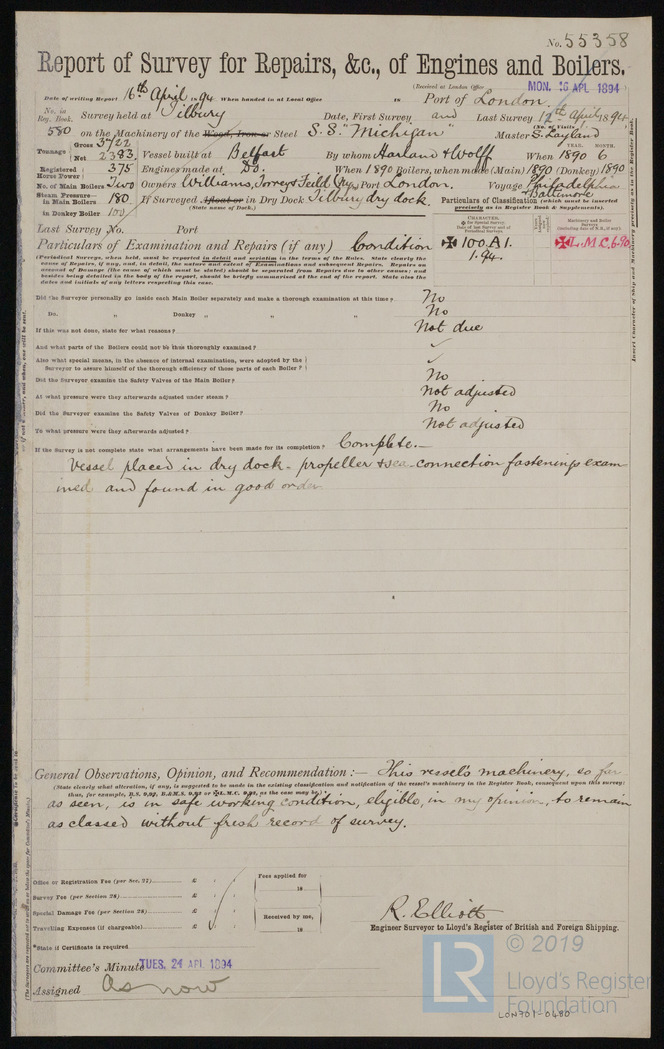 No. 55358
Report of Survey for Repairs, &c., of Engines and Boilers.
(Received at London Office MON. 16 APL 1894
Date of writing Report 16th April 1894 When handed in at Local Office 18 Port of London.
No. in Reg. Book. Survey held at Tilbury Date, First Survey and Last Survey 12th April 1894
(No. of Visits)
580 on the Machinery of the Wood, Iron or Steel S.S. "Michigan" Master S. Layland
Tonnage Gross 3722 Net 2383 Vessel built at Belfast By whom Harland & Wolff When 1890 6
YEAR. MONTH.
Registered Horse Power 375 Engines made at Do. When 1890 Boilers, when made (Main) 1890 (Donkey) 1890
No. of Main Boilers Two Owners Williams, Torrey & Feild Port London. Voyage Philadelphia & Baltimore
Steam Pressure in Main Boilers 180 If Surveyed Afloat or in Dry Dock Tilbury dry dock.
(State name of Dock.)
in Donkey Boiler 100
Particulars of Classification (which must be inserted precisely as in Register Book & Supplements).
Last Survey No. Port
CHARACTER.
for Special Survey.
Date of last Survey and of Periodical Surveys.
Machinery and Boiler Surveys
(including date of N.B., if any)
Particulars of Examination and Repairs (if any) Condition
✠ 100 A1. 1.94.
✠ L.M.C. 6.90
(Periodical Surveys, when held, must be reported in detail and seriatim in the terms of the Rules. State clearly the
cause of Repairs, if any, and, in detail, the nature and extent of Examinations and subsequent Repairs. Repairs on
account of Damage (the cause of which must be stated) should be separated from Repairs due to other causes; and
besides being detailed in the body of the report, should be briefly summarised at the end of the report. State also the
dates and initials of any letters respecting this case.
Insert Character of Ship and Machinery precisely as in the Register Book.
Did the Surveyor personally go inside each Main Boiler separately and make a thorough examination at this time? No
Do. „ Donkey „ „ „ No
If this was not done, state for what reasons? Not due
And what parts of the Boilers could not be thus thoroughly examined? ✓
Also what special means, in the absence of internal examination, were adopted by the
Surveyor to assure himself of the thorough efficiency of those parts of each Boiler? ✓
Did the Surveyor examine the Safety Valves of the Main Boiler? No
At what pressure were they afterwards adjusted under steam? Not adjusted
Did the Surveyor examine the Safety Valves of Donkey Boiler? No
To what pressure were they afterwards adjusted? Not adjusted
If the Survey is not complete state what arrangements have been made for its completion? Complete.—
Vessel placed in dry dock - propeller & sea connection fastenings exam
ined and found in good order
General Observations, Opinion, and Recommendation :— This vessel's machinery, so far
(State clearly what alteration, if any, is suggested to be made in the existing classification and notification of the vessel's machinery in the Register Book, consequent upon this survey;
as seen, is in safe working condition, eligible, in my opinion, to remain
as classed without fresh record of survey.
Office or Registration Fee (per Sec. 27) £
Fees applied for
18
Survey Fee (per Section 28) £
Special Damage Fee (per Section 28) £
Received by me,
18
Travelling Expenses (if chargeable) £
R. Elliott
Engineer Surveyor to Lloyd's Register of British and Foreign Shipping.
*State if Certificate is required
Committee's Minute TUES. 24 APL 1894
Assigned As now
LR
© 2019
Lloyd's Register
Foundation
LON701-0480